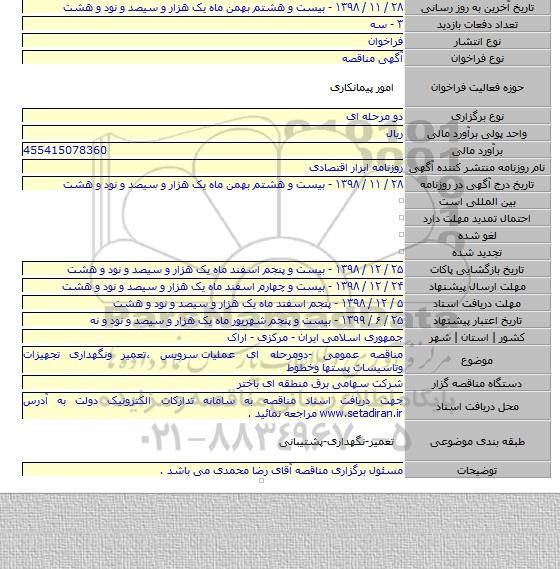 تاریخ آخرین به روز رسانی ۲۸ / ۱۱ / ۱۳۹۸ - بیست و هشتم بهمن ماه یک هزار و سیصد و نود و هشت
تعداد دفعات بازدید ۳ - سه
نوع انتشار فراخوان
نوع فراخوان آگهی مناقصه
حوزه فعالیت فراخوان امور پیمانکاری
نوع برگزاری دو مرحله ای
واحد پولی برآورد مالی ریال
برآورد مالی 455415078360
نام روزنامه منتشر کننده آگهی روزنامه ابرار اقتصادی
تاریخ درج آگهی در روزنامه ۲۸ / ۱۱ / ۱۳۹۸ - بیست و هشتم بهمن ماه یک هزار و سیصد و نود و هشت
بین المللی است
احتمال تمدید مهلت دارد
لغو شده
تجدید شده
تاریخ بازگشایی پاکات ۲۵ / ۱۲ / ۱۳۹۸ - بیست و پنجم اسفند ماه یک هزار و سیصد و نود و هشت
مهلت ارسال پیشنهاد ۲۴ / ۱۲ / ۱۳۹۸ - بیست و چهارم اسفند ماه یک هزار و سیصد و نود و هشت
مهلت دریافت اسناد ۵ / ۱۲ / ۱۳۹۸ - پنجم اسفند ماه یک هزار و سیصد و نود و هشت
تاریخ اعتبار پیشنهاد ۲۵ / ۶ / ۱۳۹۹ - بیست و پنجم شهریور ماه یک هزار و سیصد و نود و نه
کشور | استان | شهر جمهوری اسلامی ایران - مرکزی - اراک
موضوع مناقصه عمومی -دومرحله ای عملیات سرویس ،تعمیر ونگهداری تجهیزات
وتاسیسات پستها وخطوط
دستگاه مناقصه گزار شرکت سهامی برق منطقه ای باختر
محل دریافت اسناد جهت دریافت اسناد مناقصه به سامانه تدارکات الکترونیک دولت به آدرس
www.setadiran.ir مراجعه نمائید .
طبقه بندی موضوعی تعمیر-نگهداری-پشتیبانی
توضیحات مسئول برگزاری مناقصه آقای رضا محمدی می باشد .
۰۲۱-۸۸۳۴۹۶۷۰-۵